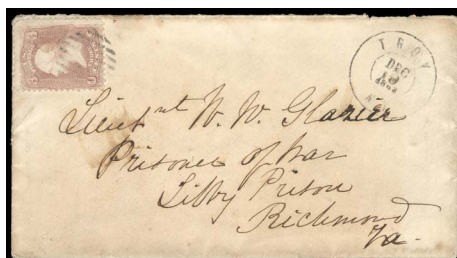 TROY
DEC
N.Y.
Lieut W. W. Glazier
Prisoner of War
Libby Prison
Richmond
Va.